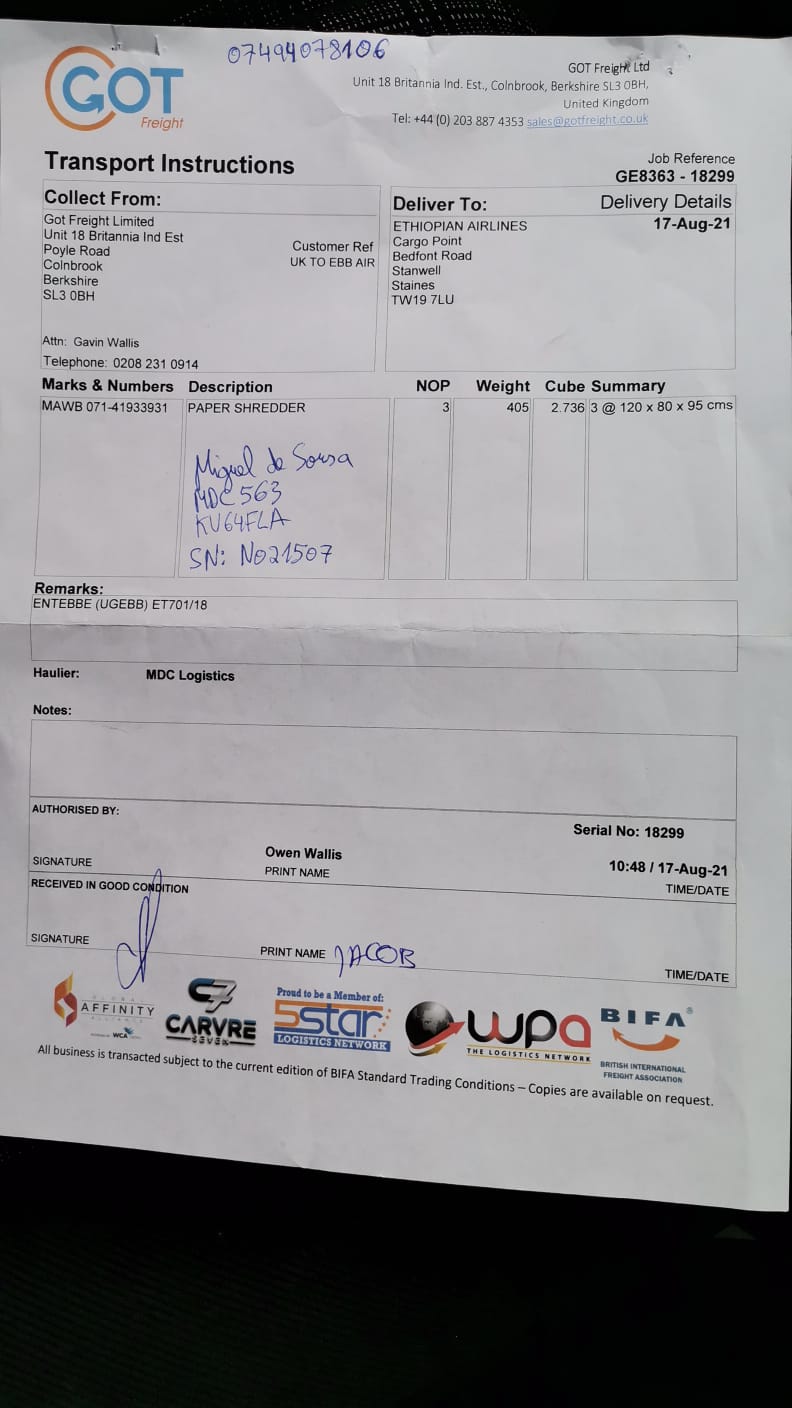 07494078106
GOT
Freight
GOT Freight Ltd
Unit 18 Britannia Ind. Est., Colnbrook, Berkshire SL3 0BH,
United Kingdom
Tel: +44 (0) 203 887 4353 sales@gotfreight.co.uk
Transport Instructions
Job Reference
GE8363 - 18299
Collect From:
Got Freight Limited
Unit 18 Britannia Ind Est
Poyle Road
Colnbrook
Berkshire
SL3 0BH
Customer Ref
UK TO EBB AIR
Attn: Gavin Wallis
Telephone: 0208 231 0914
Deliver To:
ETHIOPIAN AIRLINES
Cargo Point
Bedfont Road
Stanwell
Staines
TW19 7LU
Delivery Details
17-Aug-21
Marks & Numbers Description NOP Weight Cube Summary
MAWB 071-41933931 PAPER SHREDDER 3 405 2.736 3 @ 120 x 80 x 95 cms
Miguel de Sousa
MDC 563
KV64FLA
SN: No21507
Remarks:
ENTEBBE (UGEBB) ET701/18
Haulier: MDC Logistics
Notes:
AUTHORISED BY:
Serial No: 18299
Owen Wallis
10:48 / 17-Aug-21
SIGNATURE PRINT NAME TIME/DATE
RECEIVED IN GOOD CONDITION
SIGNATURE PRINT NAME JACOB TIME/DATE
AFFINITY
WCA
CARVRE
SEVEN
Proud to be a Member of:
5star
LOGISTICS NETWORK
wpa
THE LOGISTICS NETWORK
BIFA®
BRITISH INTERNATIONAL
FREIGHT ASSOCIATION
All business is transacted subject to the current edition of BIFA Standard Trading Conditions – Copies are available on request.